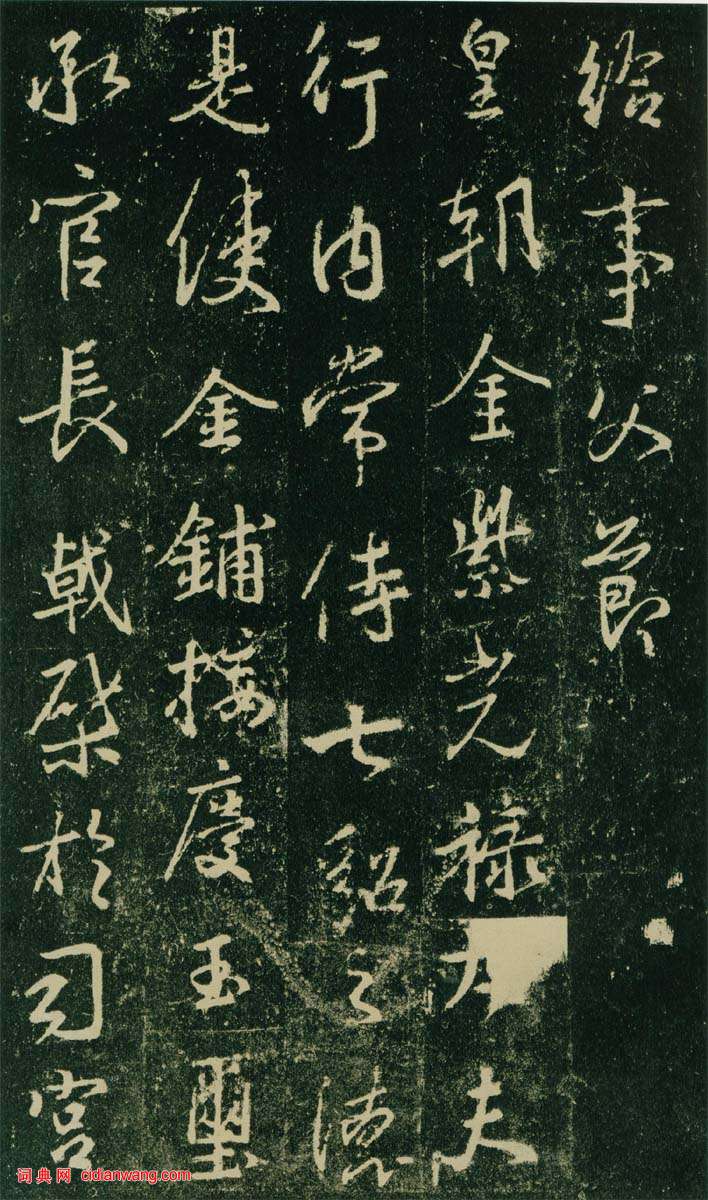 給事父節
皇朝金紫光祿大夫
行內常侍七貂之德
是使金鋪接慶玉璽
承官長戟棨於司宫
词典网 cidianwang.com